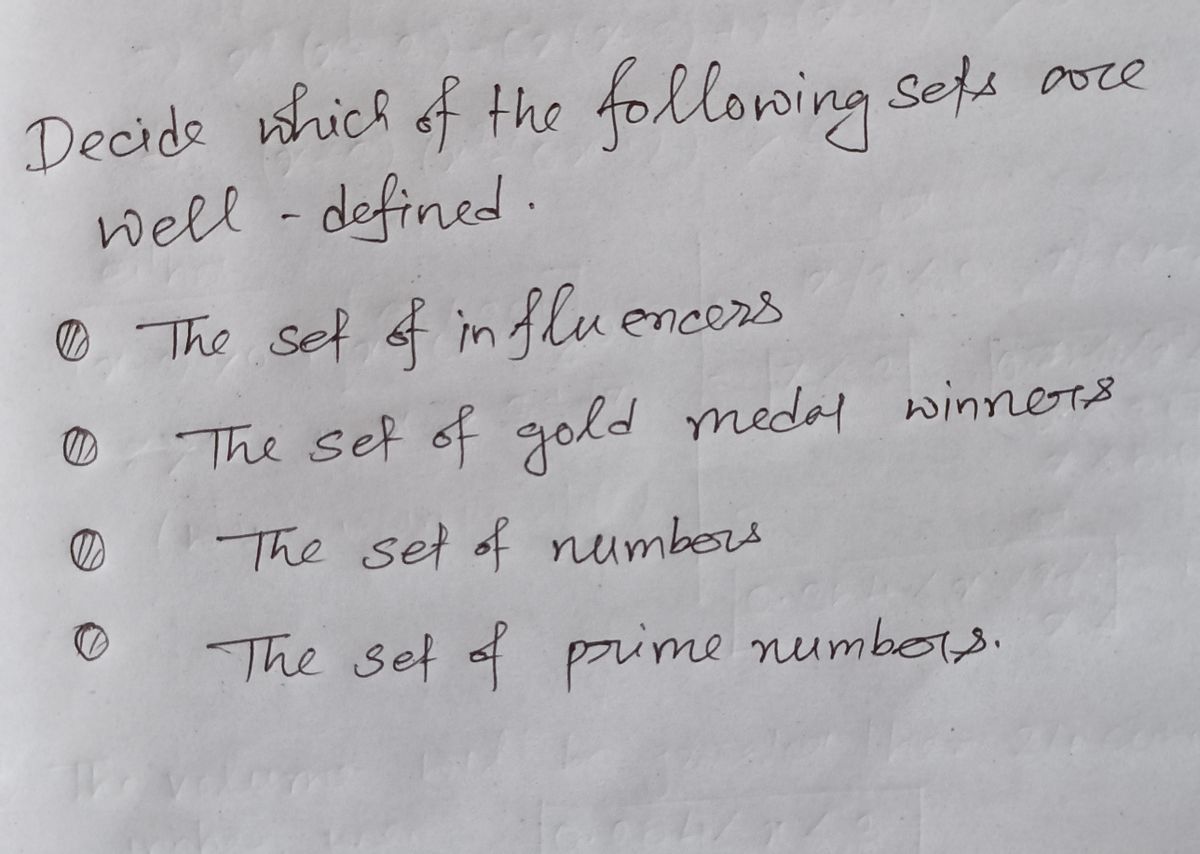 Decide which of the following sets are
well-defined.
The set of influencers
The set of gold medal winners
The set of numbers
The set of prime numbers.